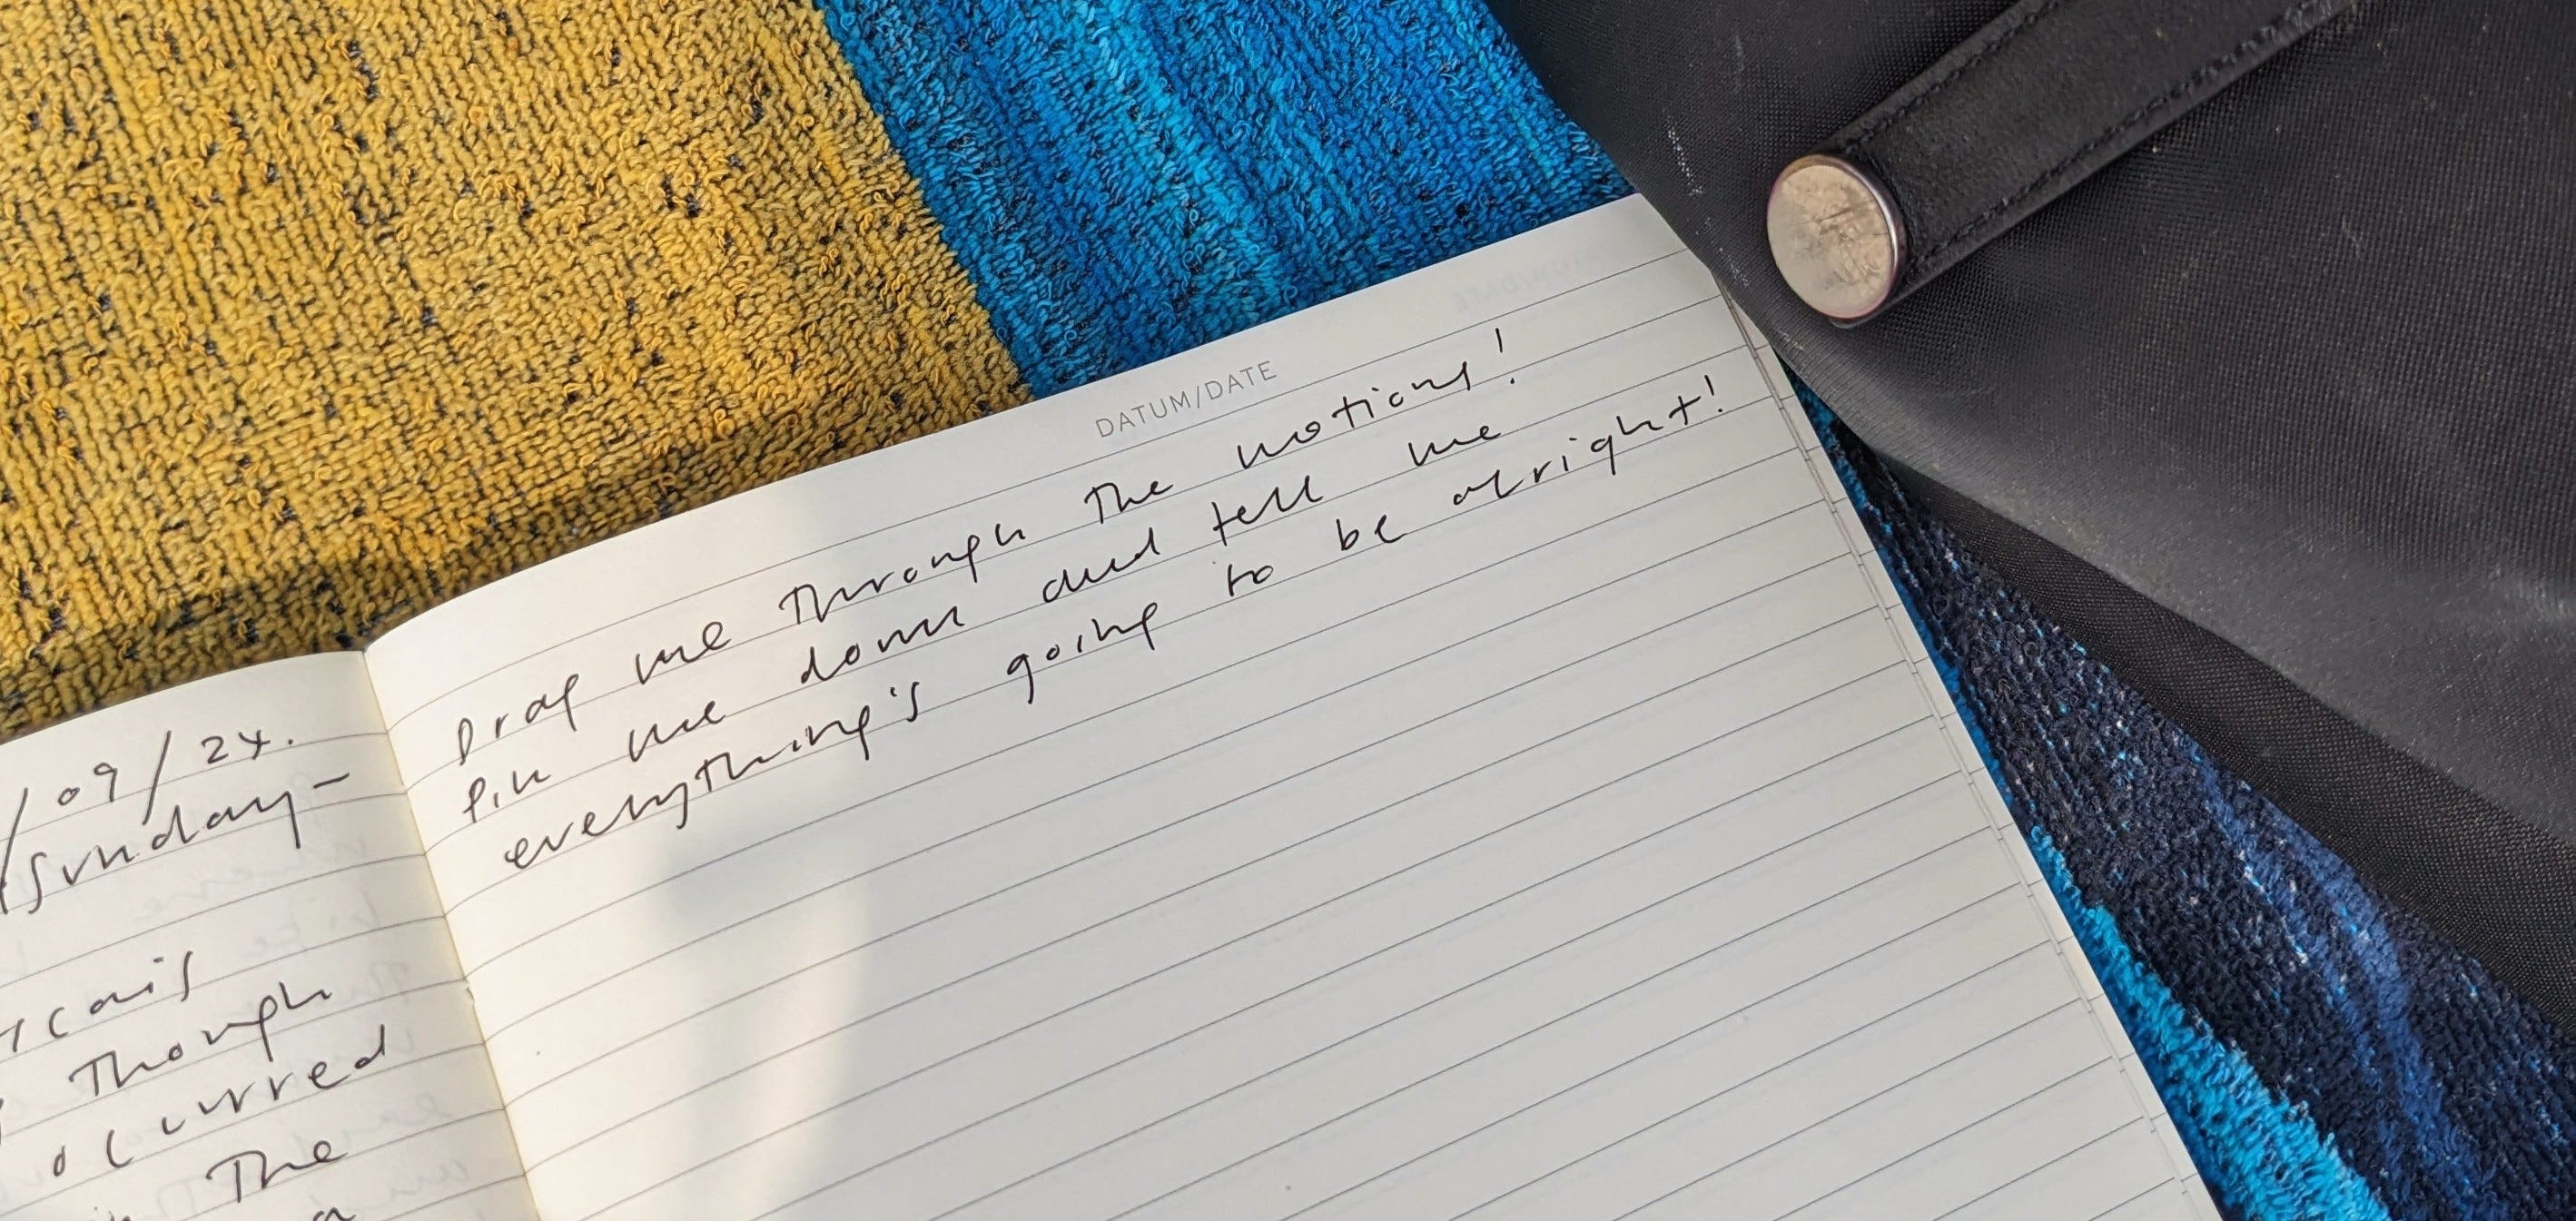 /09/24.
Sunday-
Though
occurred
The
DATUM/DATE
Drag me through the motions!
Pin me down and tell me
everything's going to be alright!